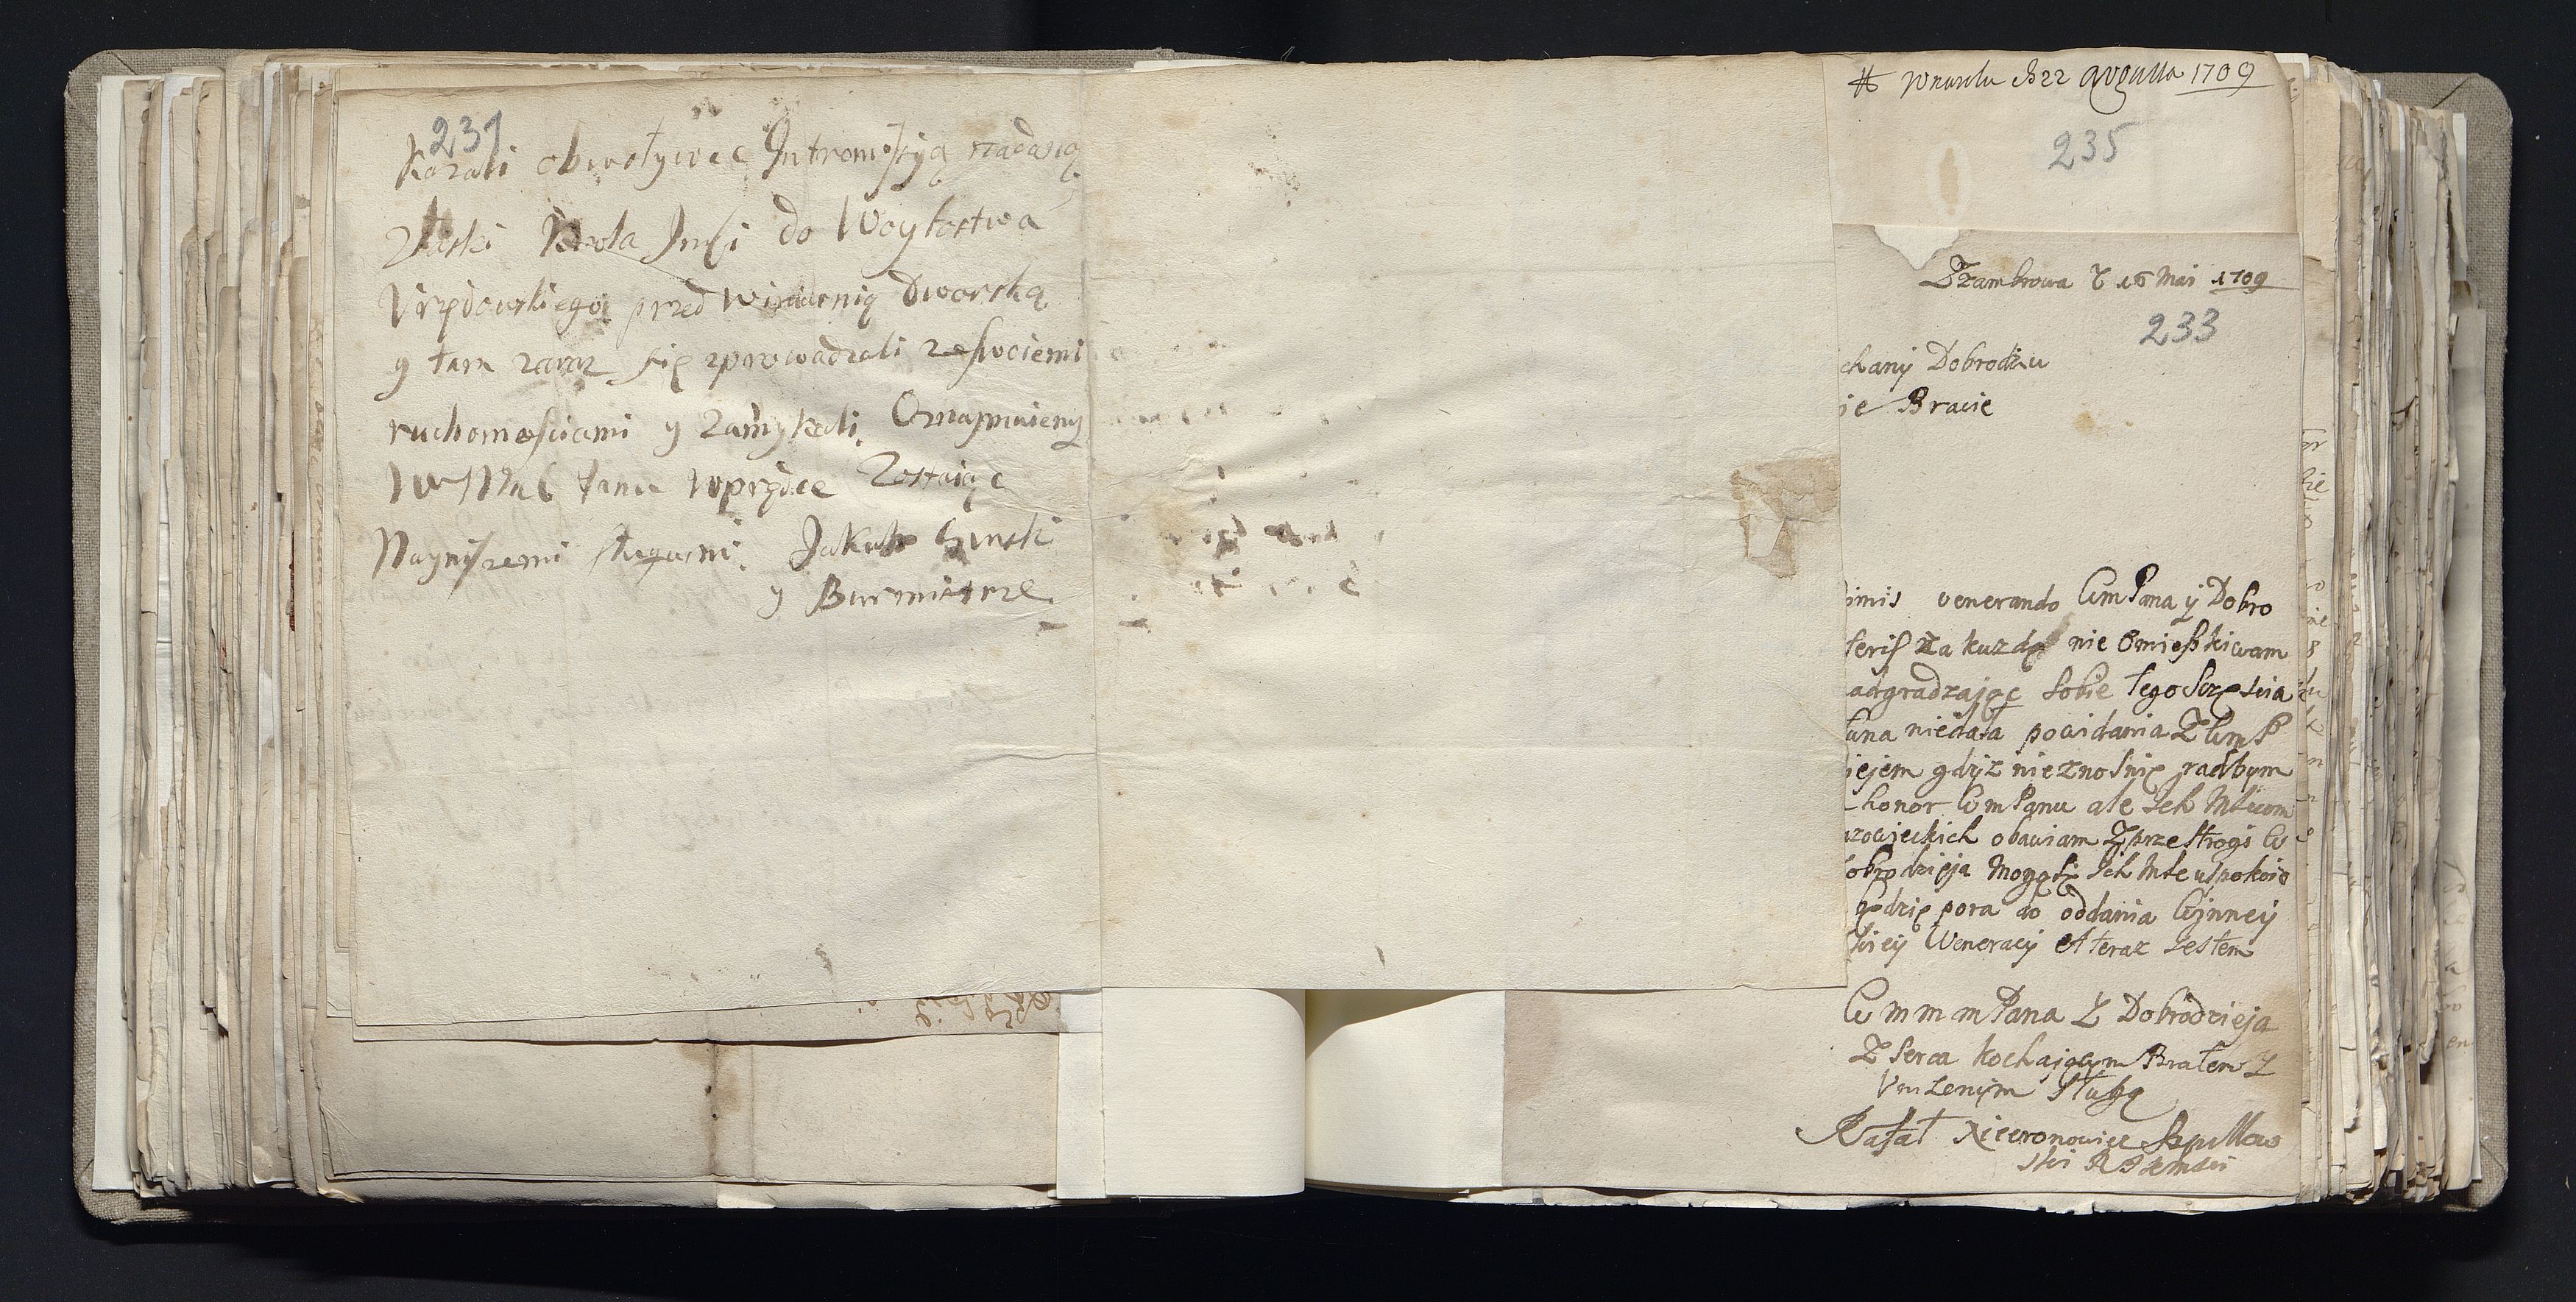 231
Kazali obwoływać Intromissyą nadaną
Złaski Krola Jmći do Woytostwa
Vrzędowskiego przed winiarnią Dworską
y tam zaraz się zprowadzali zeswoiemi
ruchomosciami y zamykali. Oznaymuiemy
tanu wprzódce Zostaiąc
Nayniszemi sługami. Jakub
y Burmistrze.
22 Augusta 1709
235
Zzambrowa 16 Mai 1709
233
chany Dobrodziu
ie Bracie
imis venerando WmPana y Dobro
teris za kazdą nie Omieszkiwam
adgradzaiąc sobie tego Szczęscia
una niedała powidania Z WmP
iejem gdyz nieznosnie radbym
honor WmPanu ale Ich Mściom
azowieckich obawiam Zprzestrogi W
obrodzieja Mogąli Ich Mść uspokoic
gdzie pora do oddania Winney
skiey Weneracy A teraz Jestem
W m m mPana Z Dobrodzieja
Z Serca kochającym Bratem Z
Vnizenym Sługą
Rafał